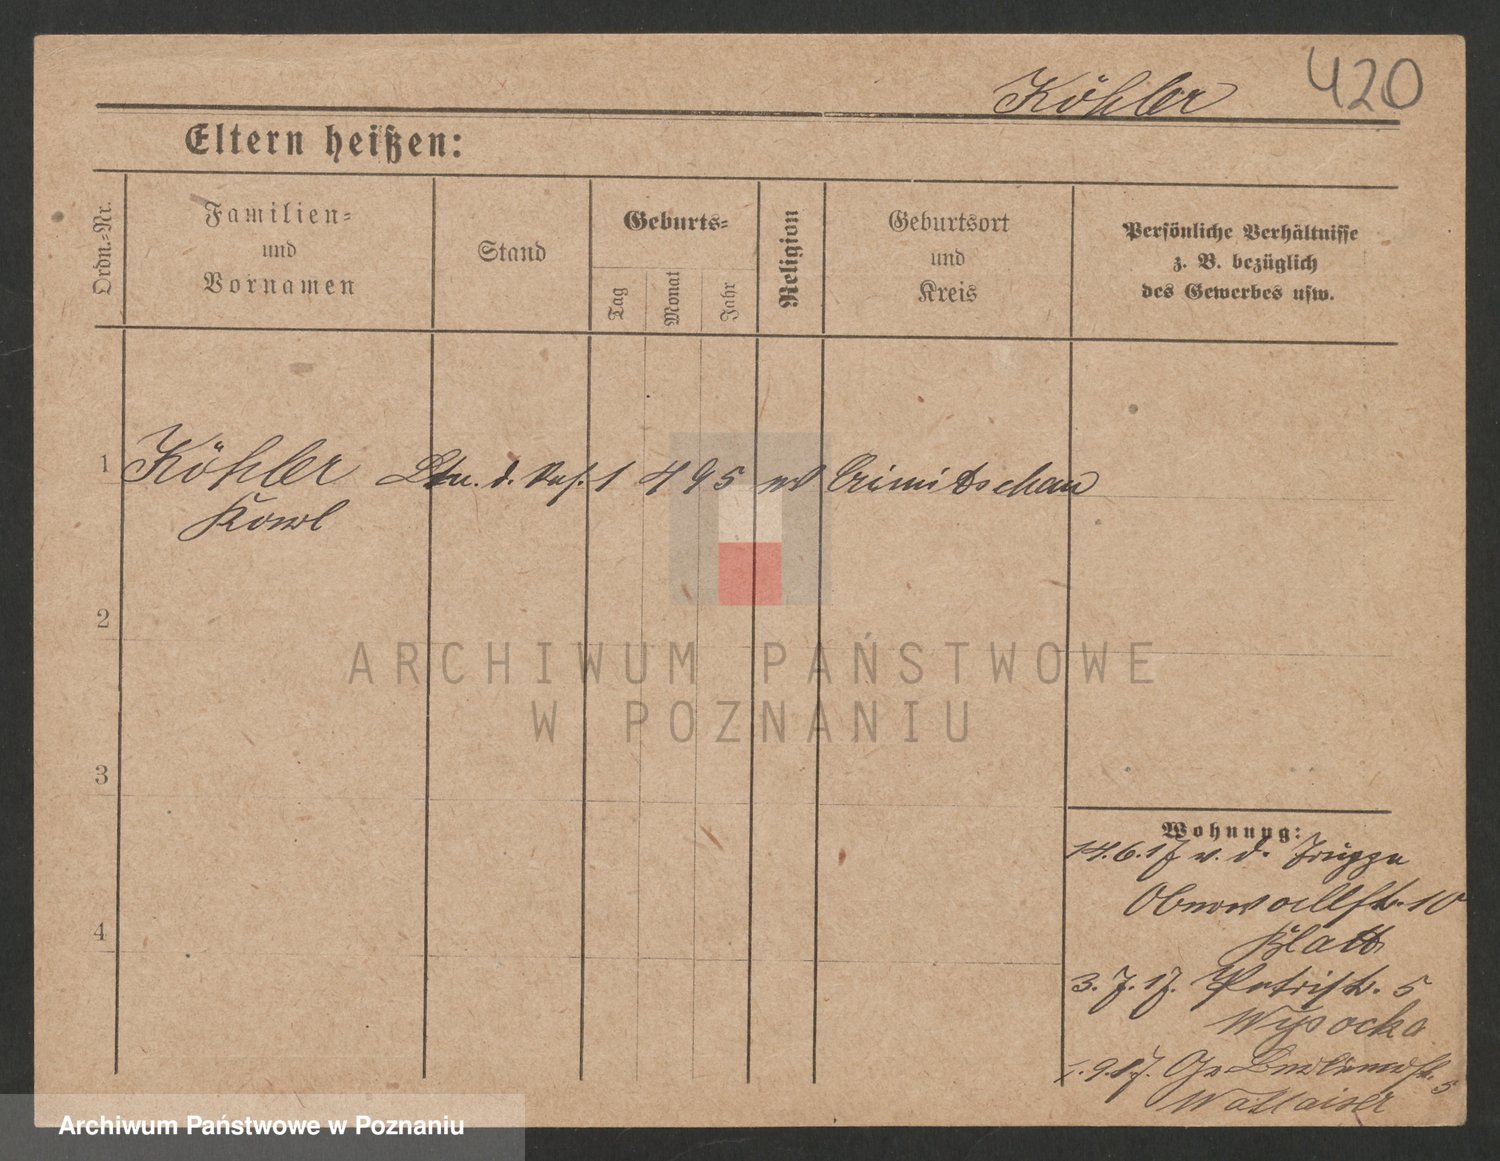 420
Köhler
Eltern heißen:
Ordn.-Nr.
Familien-
und
Vornamen
Stand
Geburts-
Tag
Monat
Jahr
Religion
Geburtsort
und
Kreis
Persönliche Verhältnisse
z. B. bezüglich
des Gewerbes usw.
1 Köhler Ltn. d. Res. 1 4 95 ev Crimitschau
Karl
2
3
4
Wohnung:
14.6.17 v. d. Truppe
Oberwallstr. 10
Klatt
3.7.17. Petristr. 5
Wysocka
1.9.17. Gr. Berlinerstr. 5
ARCHIWUM PAŃSTWOWE
W POZNANIU
Archiwum Państwowe w Poznaniu